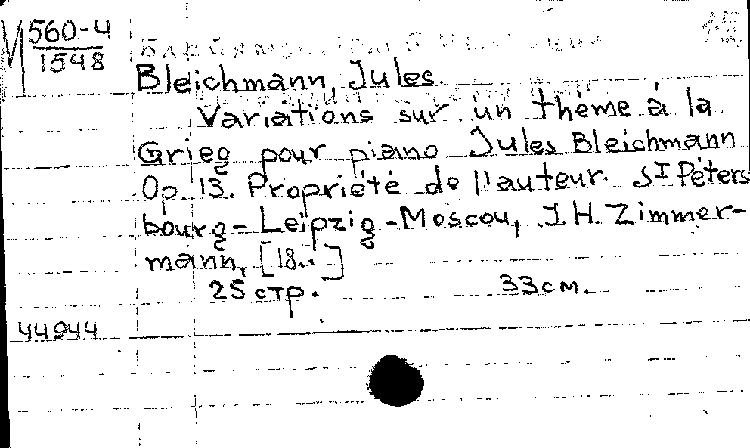 М 560-4
1548
Bleichmann, Jules
Variations sur un thème à la
Grieg pour piano Jules Bleichmann
Op. 13. Propriété de l'auteur. St Péters
bourg - Leipzig - Moscou, J.H. Zimmer-
mann, [18..]
25 стр. 33 см.
44944